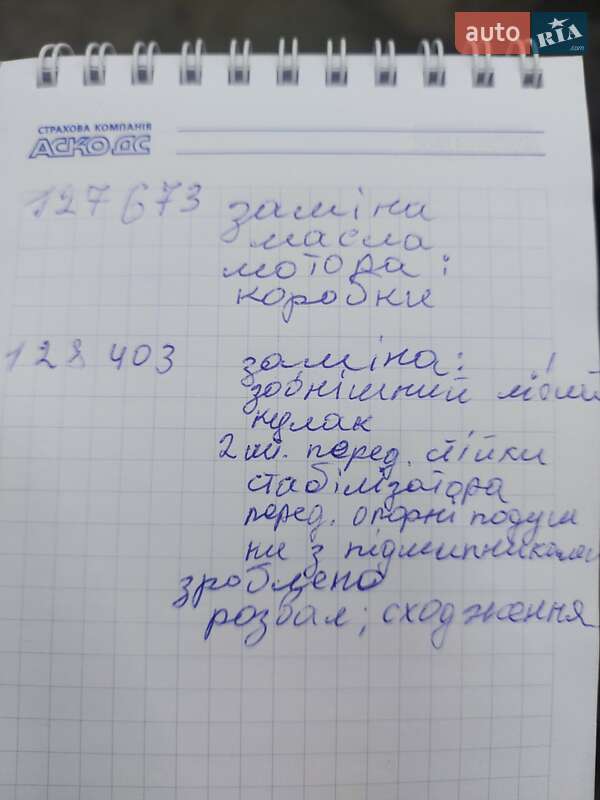 auto RIA .com
СТРАХОВА КОМПАНІЯ
АСКО ДС
127 673 заміни
масла
мотора :
коробки
128 403 заміна :
зовнішний
кулак
2 шт. перед. стійки
стабілізатора
перед. опорні подуш
ки з підшипниками
зроблено
розвал ; сходження